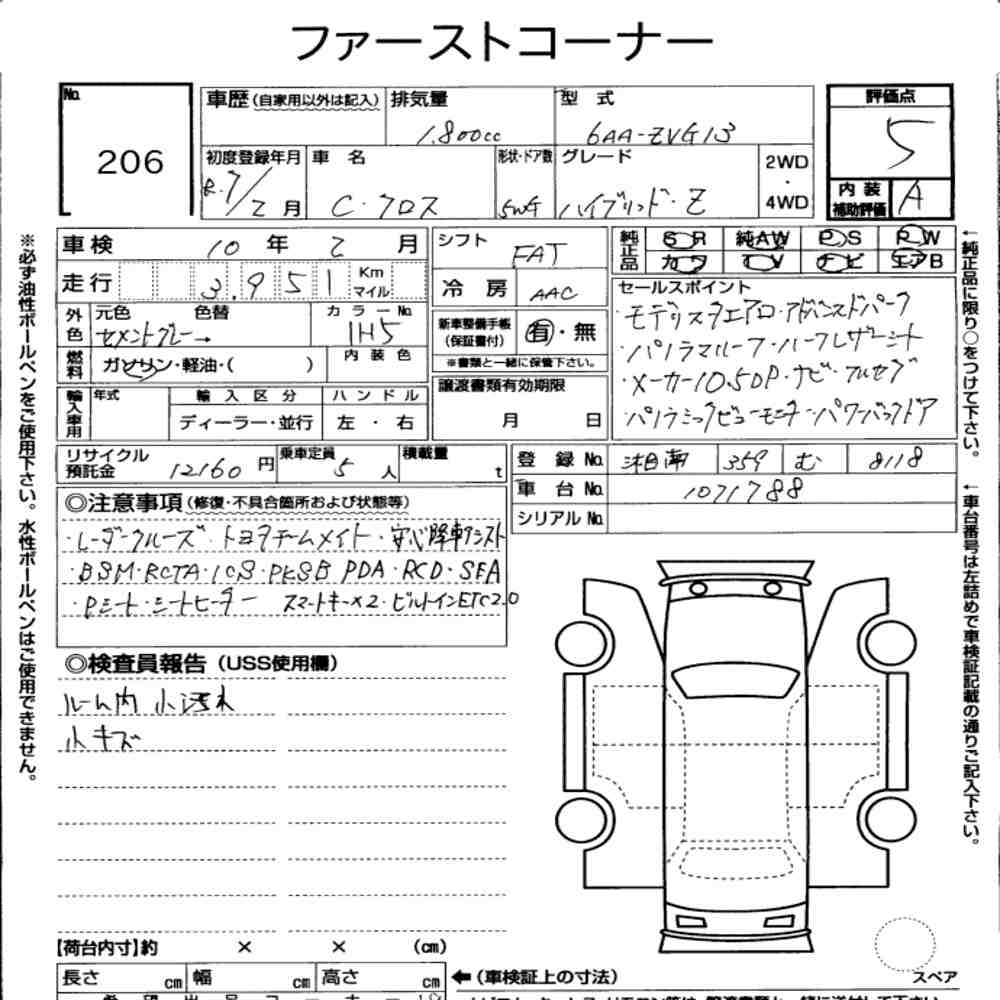 ファーストコーナー
No. 206
車歴 (自家用以外は記入) 排気量 1.800cc 型式 6AA-ZVG13 評価点 5
初度登録年月 R.7/2月 車名 C・クロス 形状・ドア数 5WG グレード ハイブリッド・Z 2WD・4WD 内装補助評価 A
車検 10年2月 シフト FAT 純正品 SR 純AW PS PW
走行 3.951 Km マイル カワ TV ナビ エアB
冷房 AAC セールスポイント
外色 元色 色替 カラーNo. セメントグレー→ 1H5 新車整備手帳(保証書付) 有・無 モデリスタエアロ・アドバンスドパーク
※書類と一緒に保管下さい。 ・パノラマルーフ・ハーフレザーシート
燃料 ガソリン・軽油・( ) 内装色 譲渡書類有効期限 月 日 ・メーカー10.5DP・ナビ・フルセグ
輸入車用 年式 輸入区分 ハンドル ディーラー・並行 左・右 パノラミックビューモニター・パワーバックドア
リサイクル預託金 12160円 乗車定員 5人 積載量 t 登録No. 湘南 359 む 8118
車台No. 1071788
シリアルNo.
◎注意事項(修復・不具合箇所および状態等)
・レーダークルーズ・トヨタチームメイト・安心降車アシスト
・BSM・RCTA・ICS・PKSB PDA・RCD・SEA
・Pシート・シートヒーター スマートキー×2・ビルトインETC2.0
◎検査員報告(USS使用欄)
ルーム内 小汚れ
小キズ
【荷台内寸】約 × × (cm)
長さ cm 幅 cm 高さ cm ←(車検証上の寸法)
スペア
※必ず油性ボールペンをご使用下さい。水性ボールペンはご使用できません。
←純正品に限り○をつけて下さい。
←車台番号は左詰めで車検証記載の通りご記入下さい。